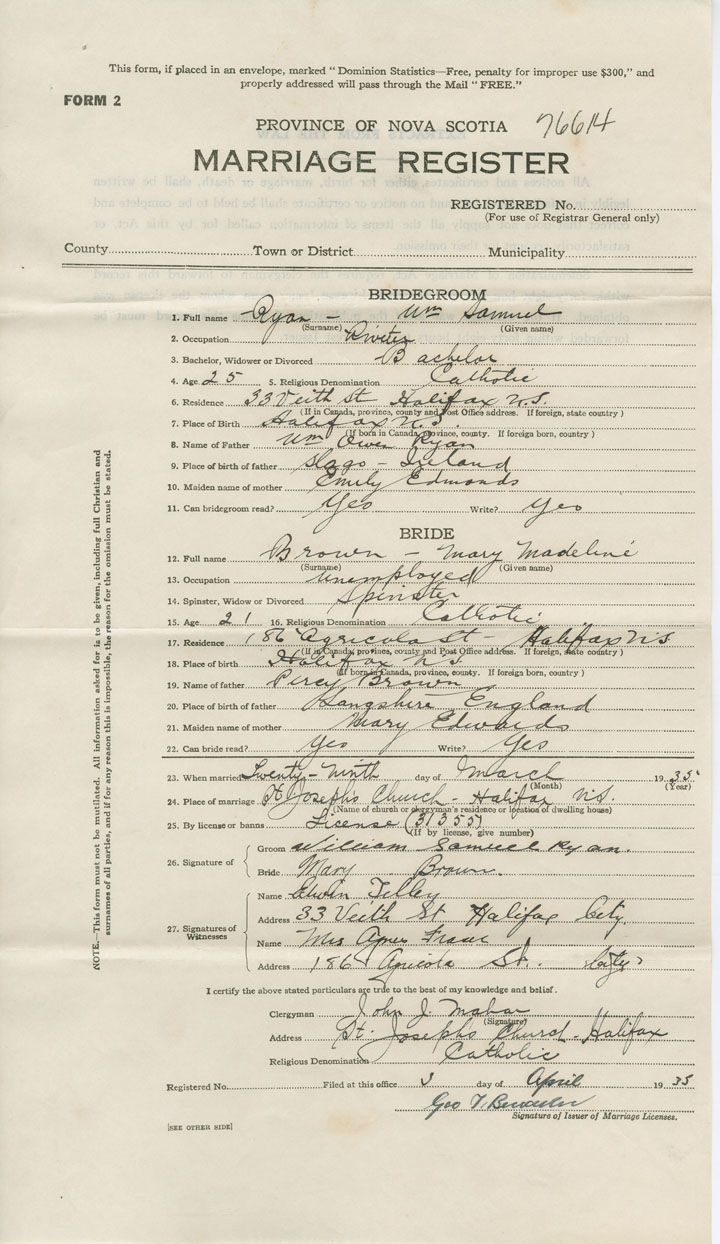 This form, if placed in an envelope, marked "Dominion Statistics—Free, penalty for improper use $300," and
properly addressed will pass through the Mail "FREE."
FORM 2
PROVINCE OF NOVA SCOTIA 76614
MARRIAGE REGISTER
REGISTERED No.
(For use of Registrar General only)
County Town or District Municipality
BRIDEGROOM
1. Full name Ryan - Wm Samuel
(Surname) (Given name)
2. Occupation Riveter
3. Bachelor, Widower or Divorced Bachelor
4. Age 25 5. Religious Denomination Catholic
6. Residence 33 Veith St Halifax N.S.
(If in Canada, province, county and Post Office address. If foreign, state country)
7. Place of Birth Halifax N.S.
(If born in Canada, province, county. If foreign born, country)
8. Name of Father Wm Owen Ryan
9. Place of birth of father Slago - Ireland
10. Maiden name of mother Emily Edmonds
11. Can bridegroom read? Yes Write? Yes
BRIDE
12. Full name Brown - Mary Madeline
(Surname) (Given name)
13. Occupation Unemployed
14. Spinster, Widow or Divorced Spinster
15. Age 21 16. Religious Denomination Catholic
17. Residence 186 Agricola St - Halifax N.S
(If in Canada, province, county and Post Office address. If foreign, state country)
18. Place of birth Halifax N.S.
(If born in Canada, province, county. If foreign born, country)
19. Name of father Percy Brown
20. Place of birth of father Hangshire England
21. Maiden name of mother Mary Edwards
22. Can bride read? Yes Write? Yes
23. When married Twenty-Ninth day of March 1935
(Month) (Year)
24. Place of marriage St Joseph's Church - Halifax N.S.
(Name of church or clergyman's residence or location of dwelling house)
25. By license or banns License (31355)
(If by license, give number)
26. Signature of
Groom William Samuel Ryan.
Bride Mary Brown.
27. Signatures of Witnesses
Name Edwin Tilley
Address 33 Veith St Halifax City
Name Mrs Agnes Fraser
Address 186 Agricola St. City
I certify the above stated particulars are true to the best of my knowledge and belief.
Clergyman John J. Mahar
(Signature)
Address St. Josephs Church - Halifax
Religious Denomination Catholic
Registered No. Filed at this office 3 day of April 1935
Geo V.
Signature of Issuer of Marriage Licenses.
[SEE OTHER SIDE]
NOTE.—This form must not be mutilated. All information asked for is to be given, including full Christian and
surnames of all parties, and if for any reason this is impossible, the reason for the omission must be stated.